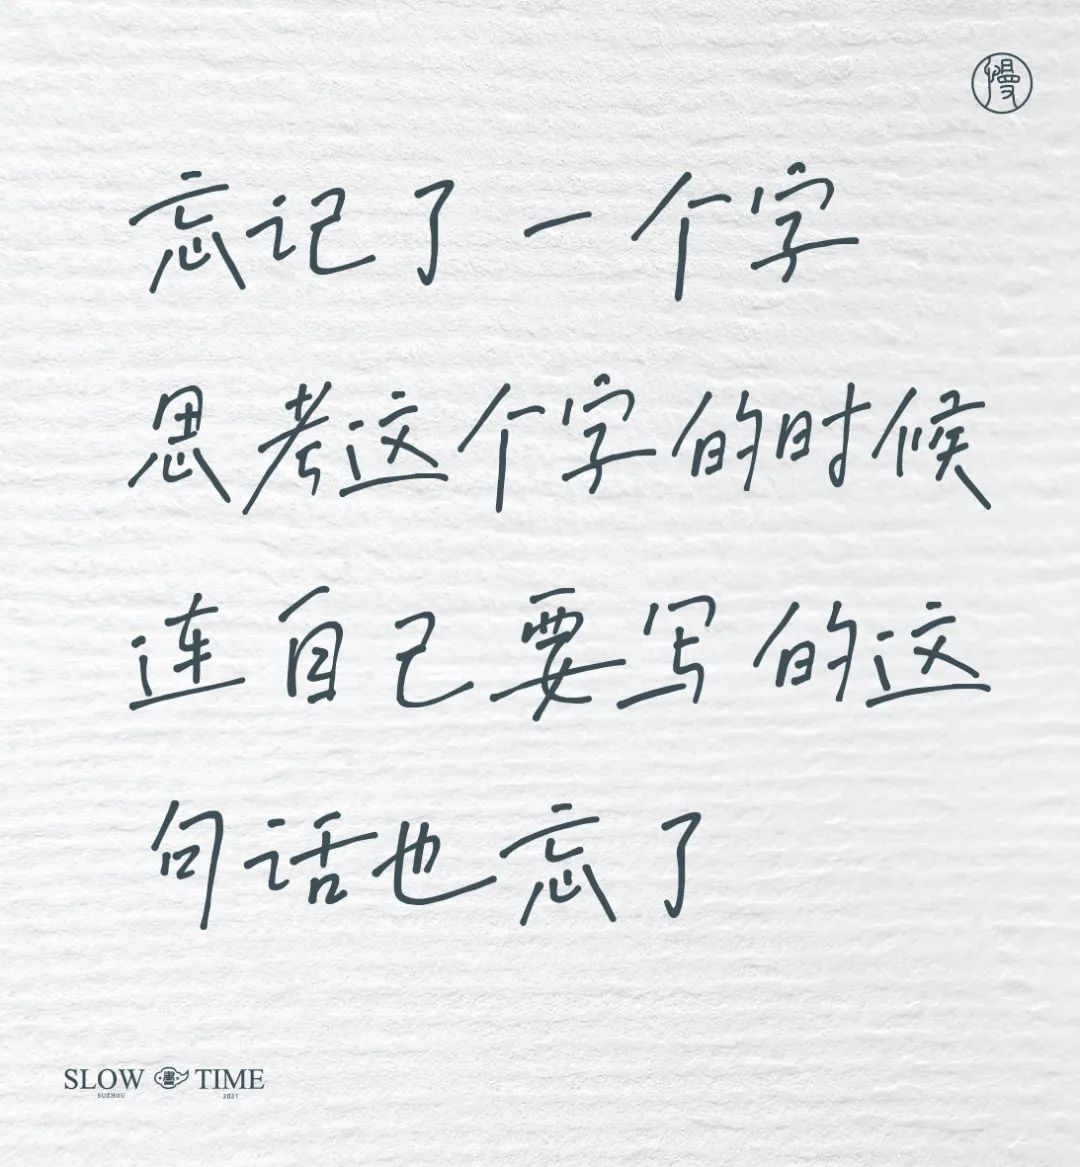 慢
忘记了一个字
思考这个字的时候
连自己要写的这
句话也忘了
SLOW 書 TIME
SUZHOU 2021